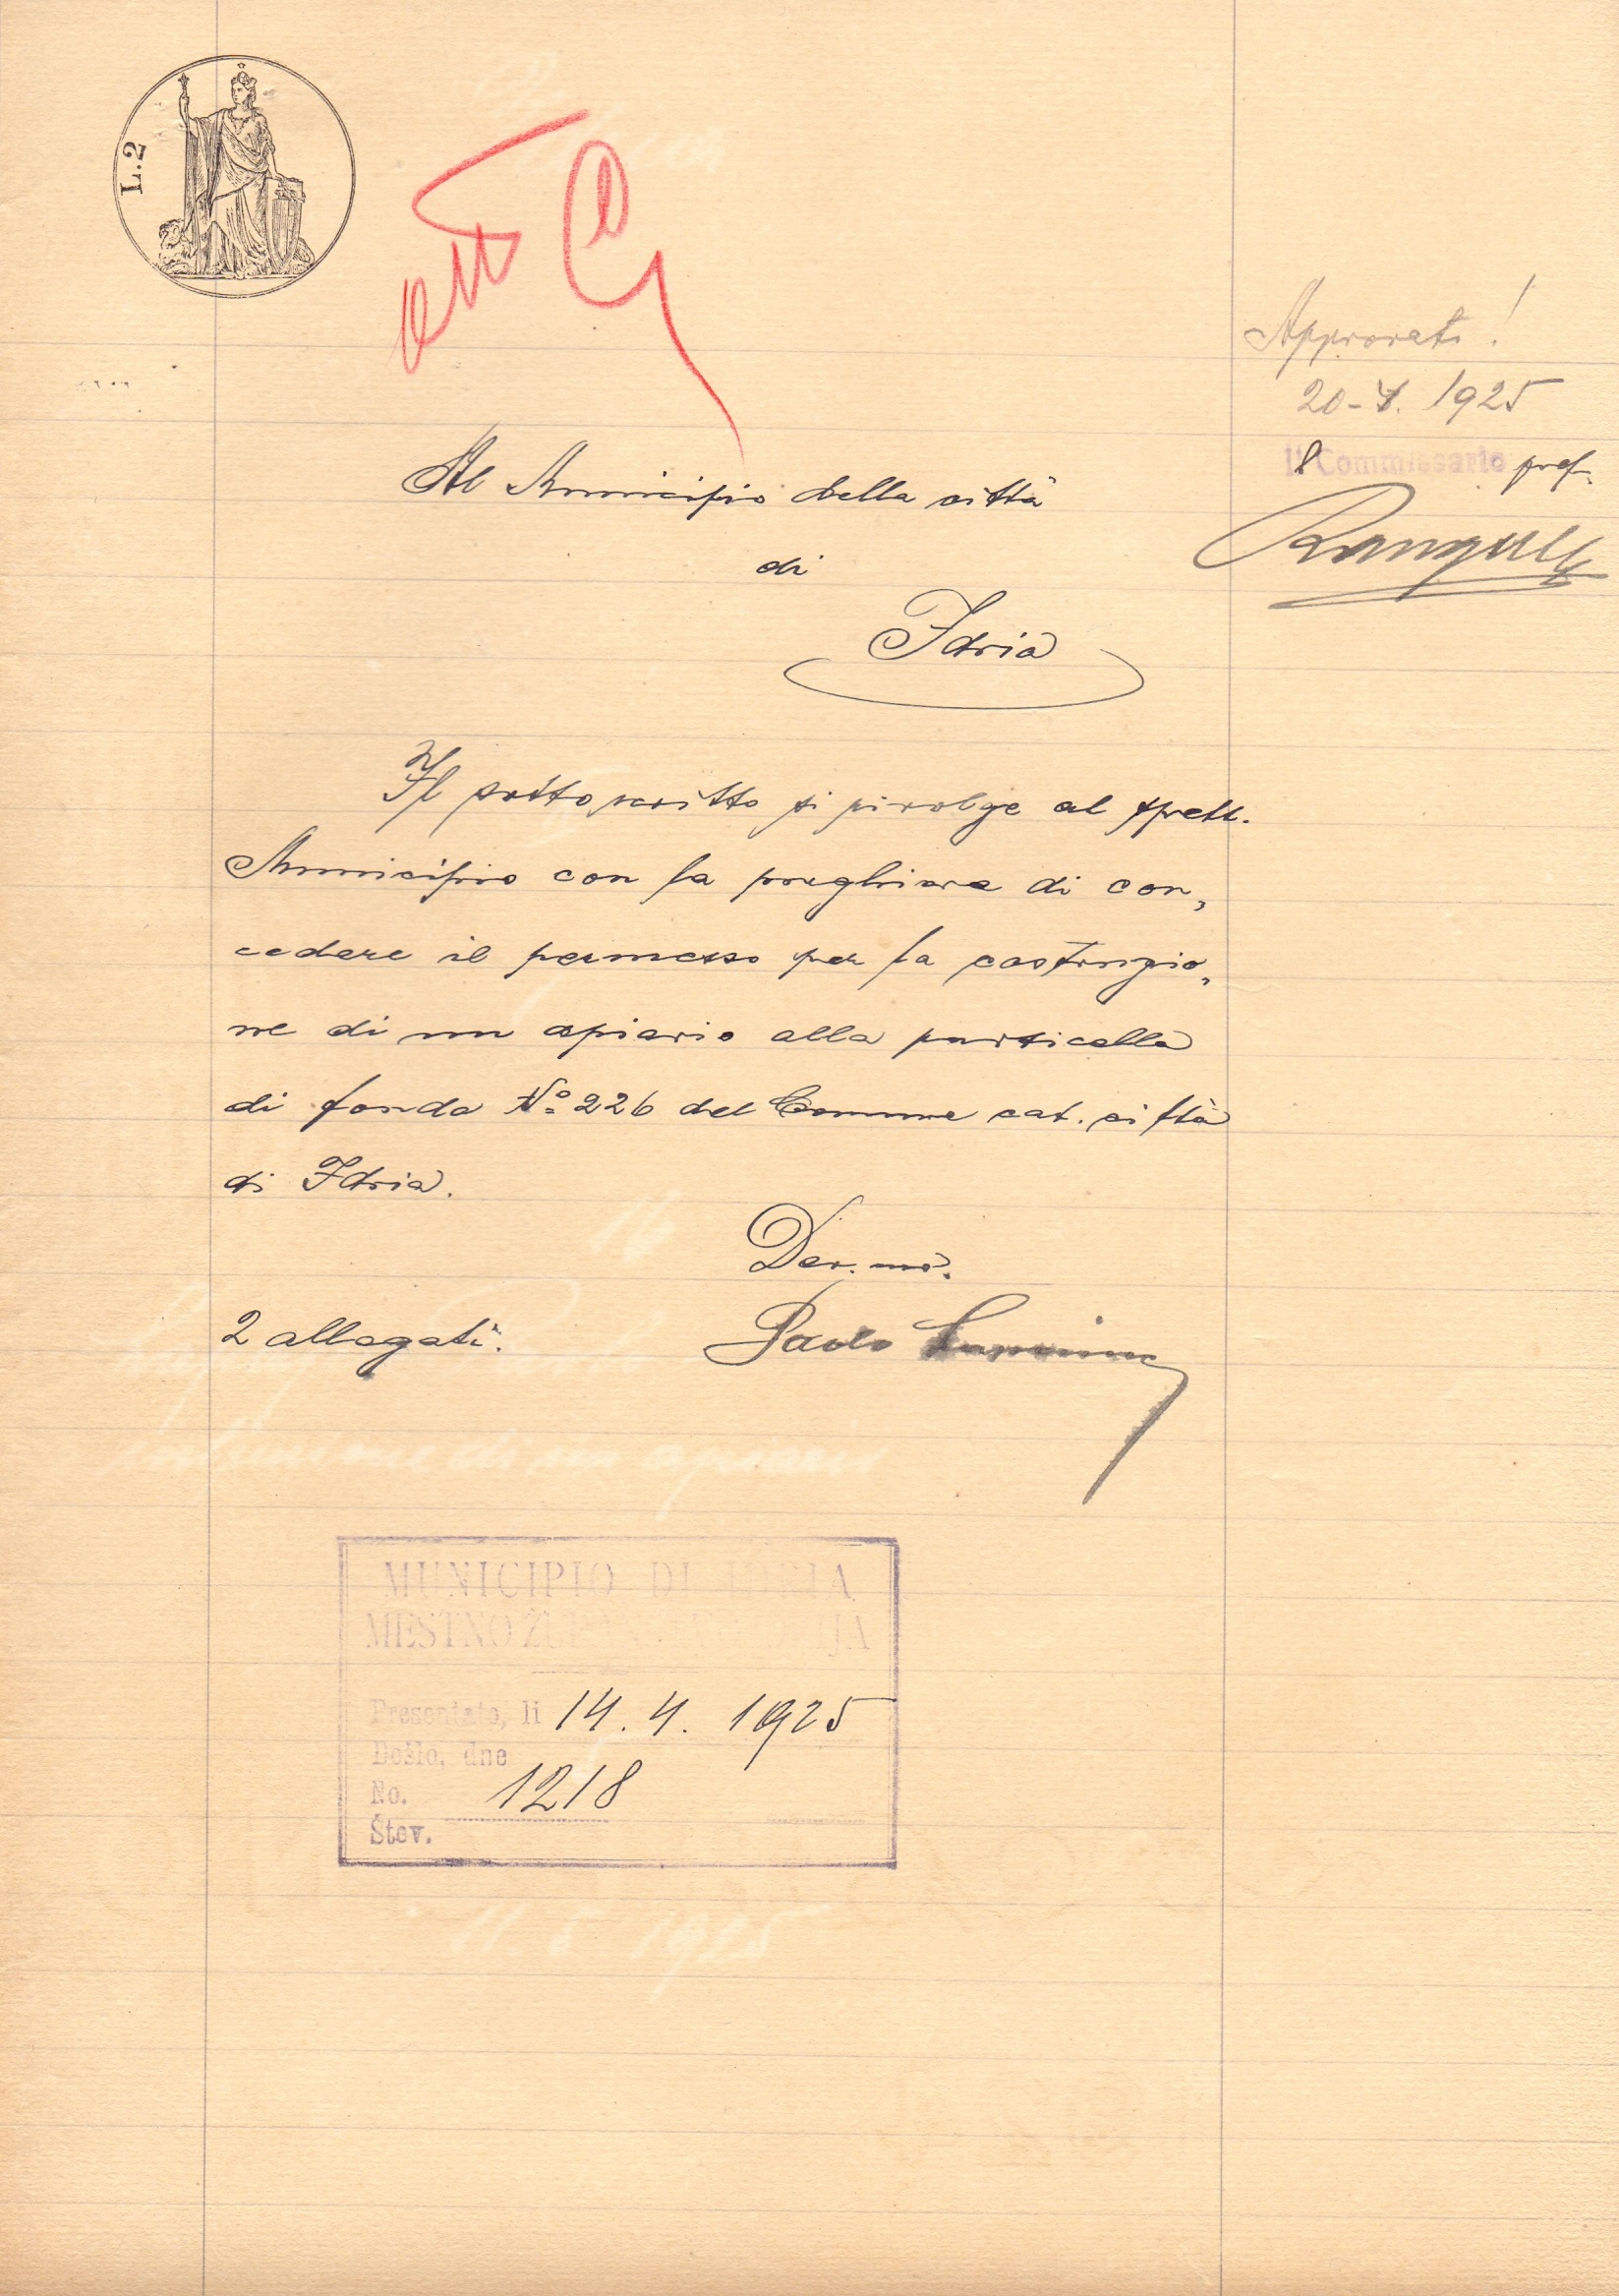 L.2
Approvato!
20-4. 1925
Il Commissario pref.
Al Municipio della città
di
Idria
Il sottoscritto si pivolge al spett.
Municipio con la preghiera di con„
cedere il permesso per la costruzio„
ne di un apiario alla particella
di fondo Nº 226 del Comune cat. città
di Idria.
Dev.mo.
2 allegati.
Paolo
MUNICIPIO DI IDRIA
MESTNO ŽUP
Presentato, li 14. 4. 1925
Došlo, dne
No. 1218
Štev.